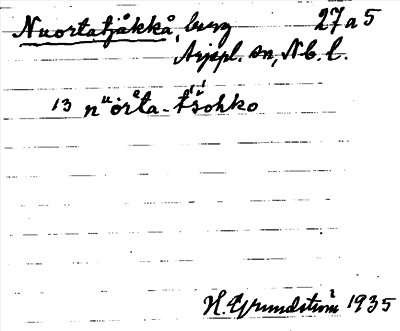 Nuortatjåkkå, berg 27a5
Arjepl. sn, Nb. l.
13 nuörta-tšohko
H. Grundström 1935